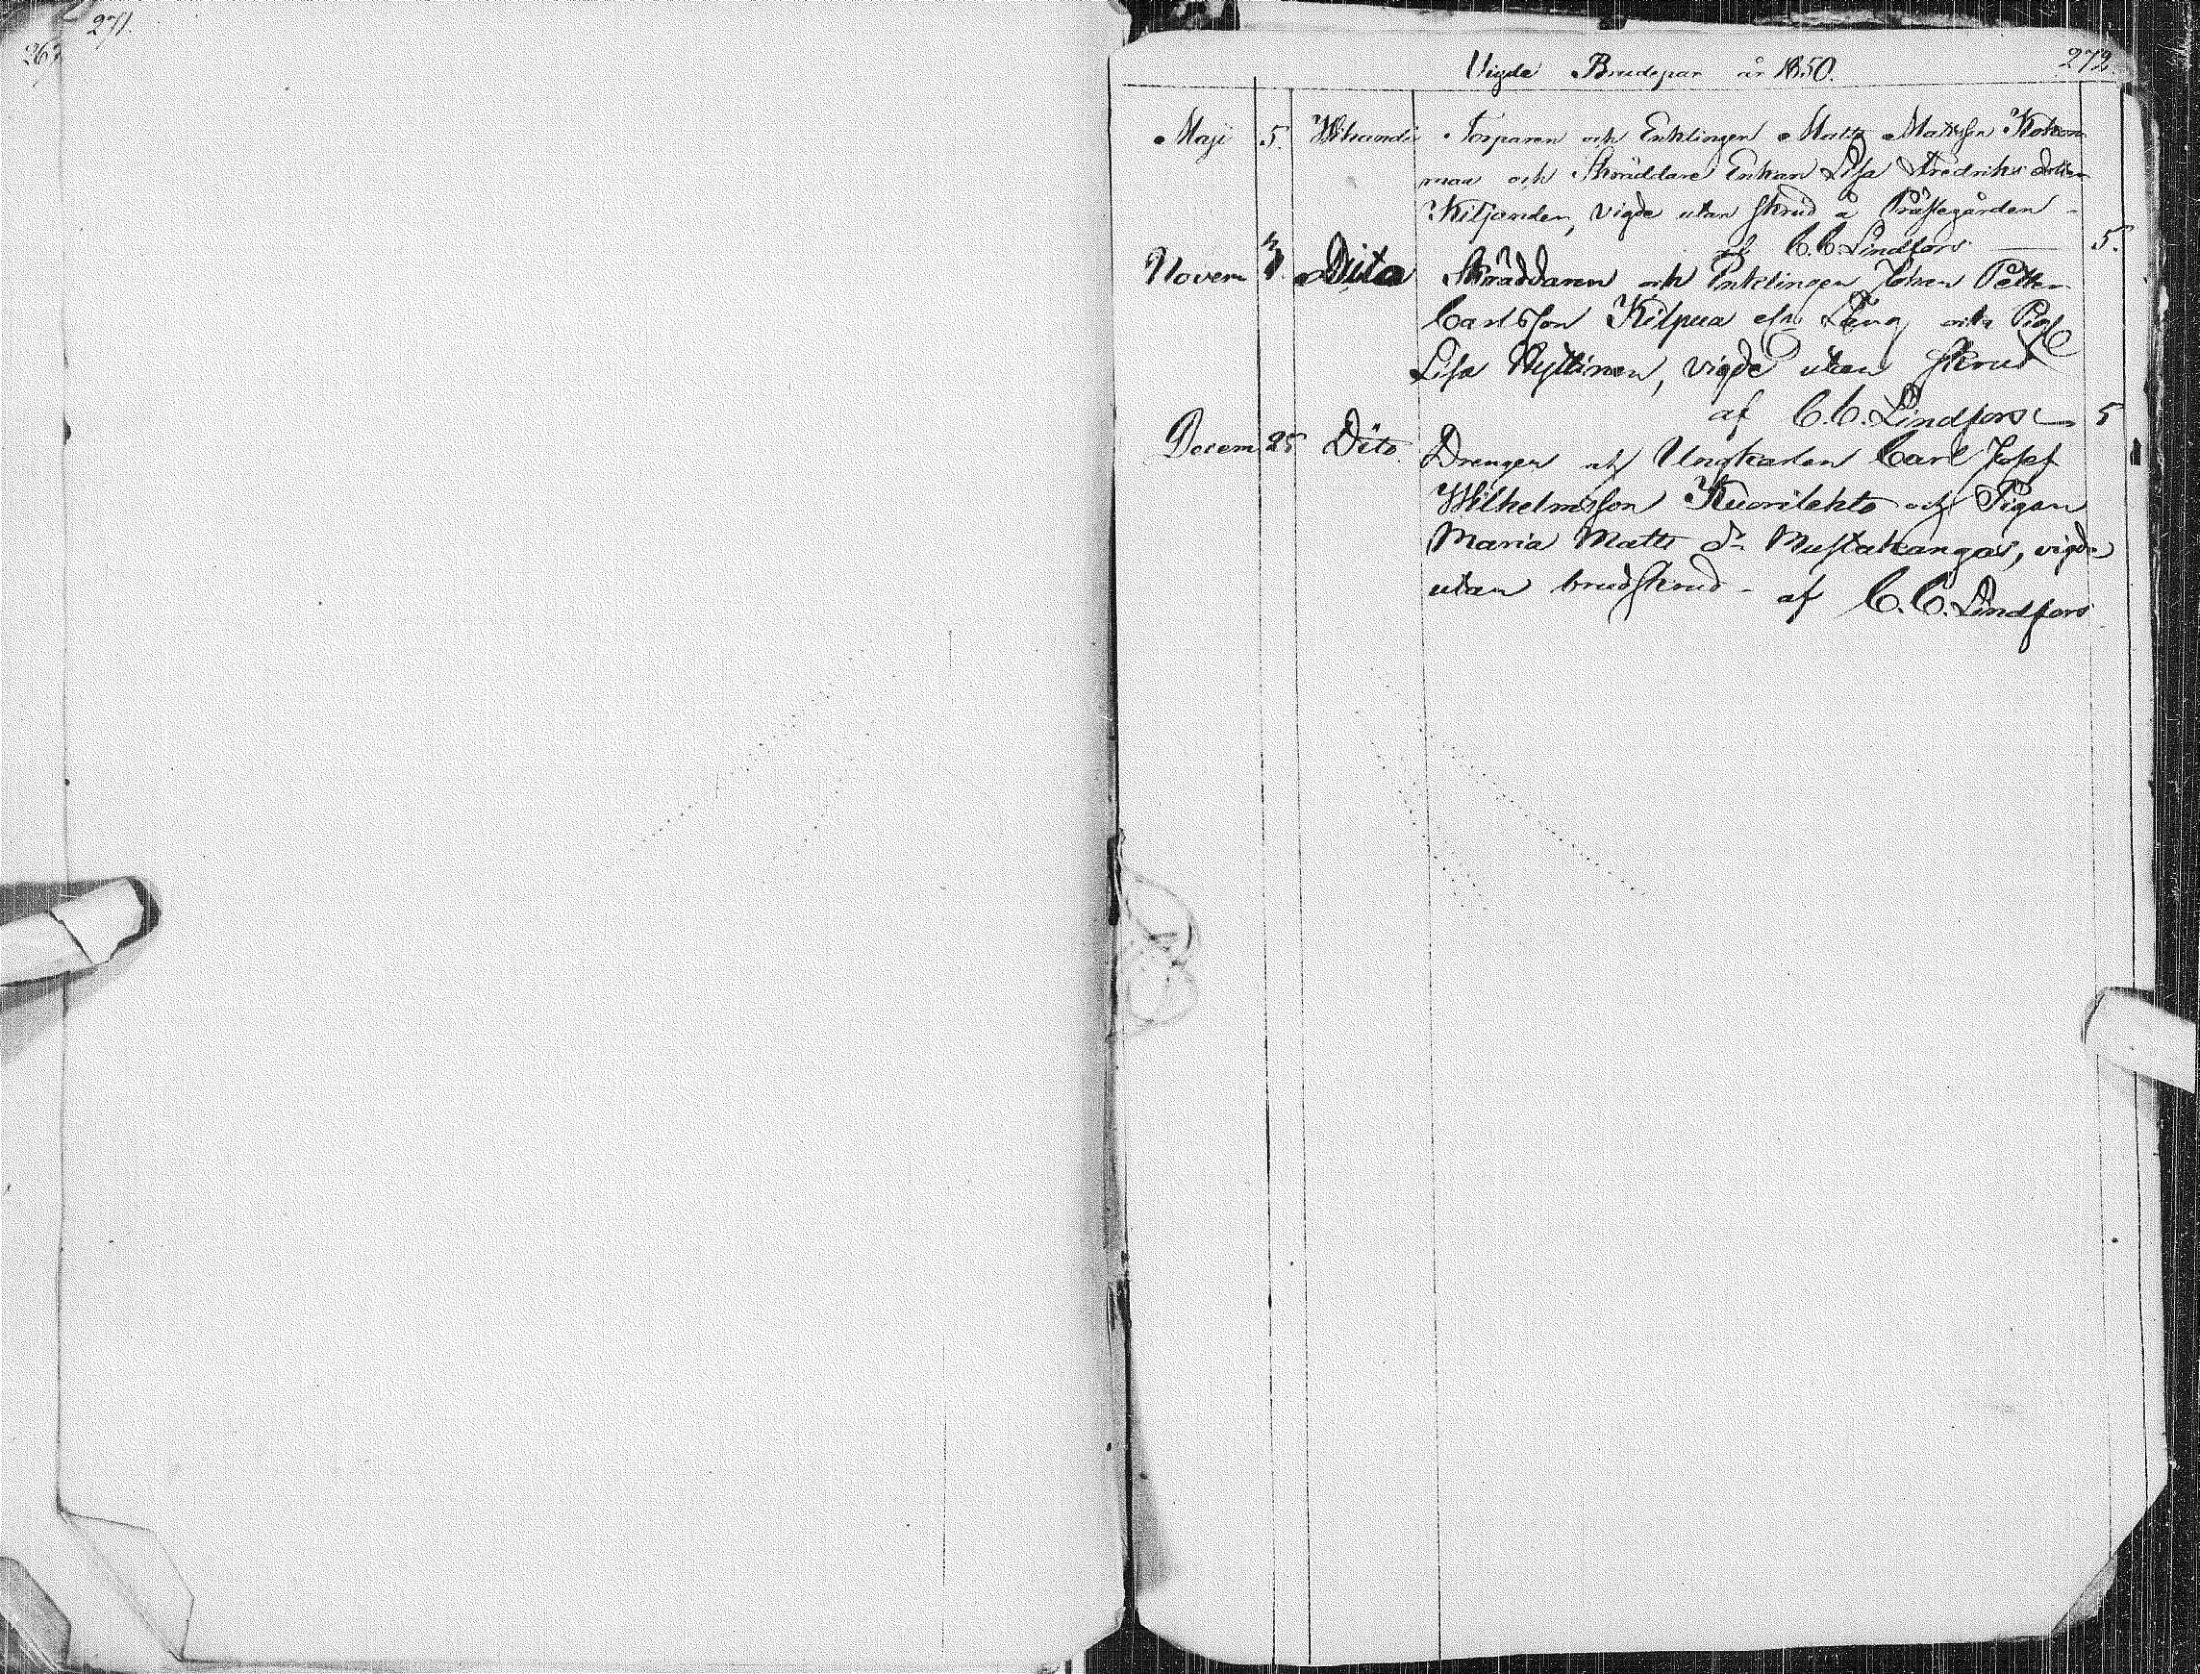 271.
267
Vigde Brudepar år 1850. 272.
Maji 5. Wihandi Torparen och Enklingen Matts Mattsson Kokon
man och Skräddare Enkan Lisa Fredriks dotter
Kiljander, vigde utan skrud å Prästegården -
af C. C. Lindfors — 5.
Novem Dito Skräddaren och Enklingen Johan Petter
Carlsson Kilpua Läng och Pig
Lisa Hyttinen, vigde utan skrud
af C. C. Lindfors — 5
Decem 25 Dito Drengen och Ungkarlen Carl Josef
Wilhelmsson Kuorilehto och Pigan
Maria Matts dr Mustakangas, vigde
utan brudskrud - af C. C. Lindfors